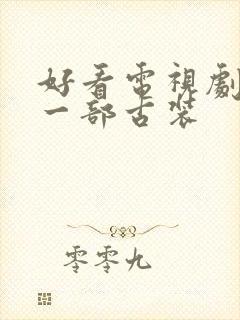 好看電視劇
一部古装
零零九